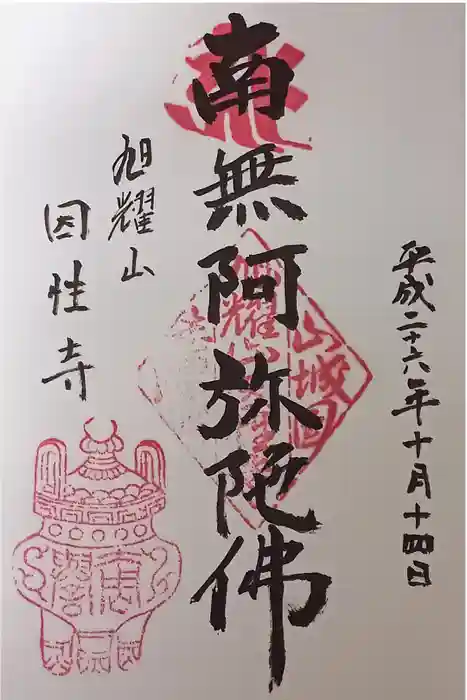 平成二十六年十月十四日
南無阿弥陀佛
旭耀山
因性寺
山城国